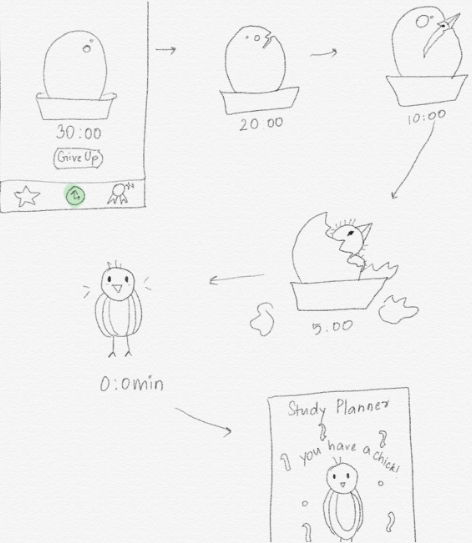 30:00
Give Up
20:00
10:00
5:00
0:0min
Study Planner
you have a chick!